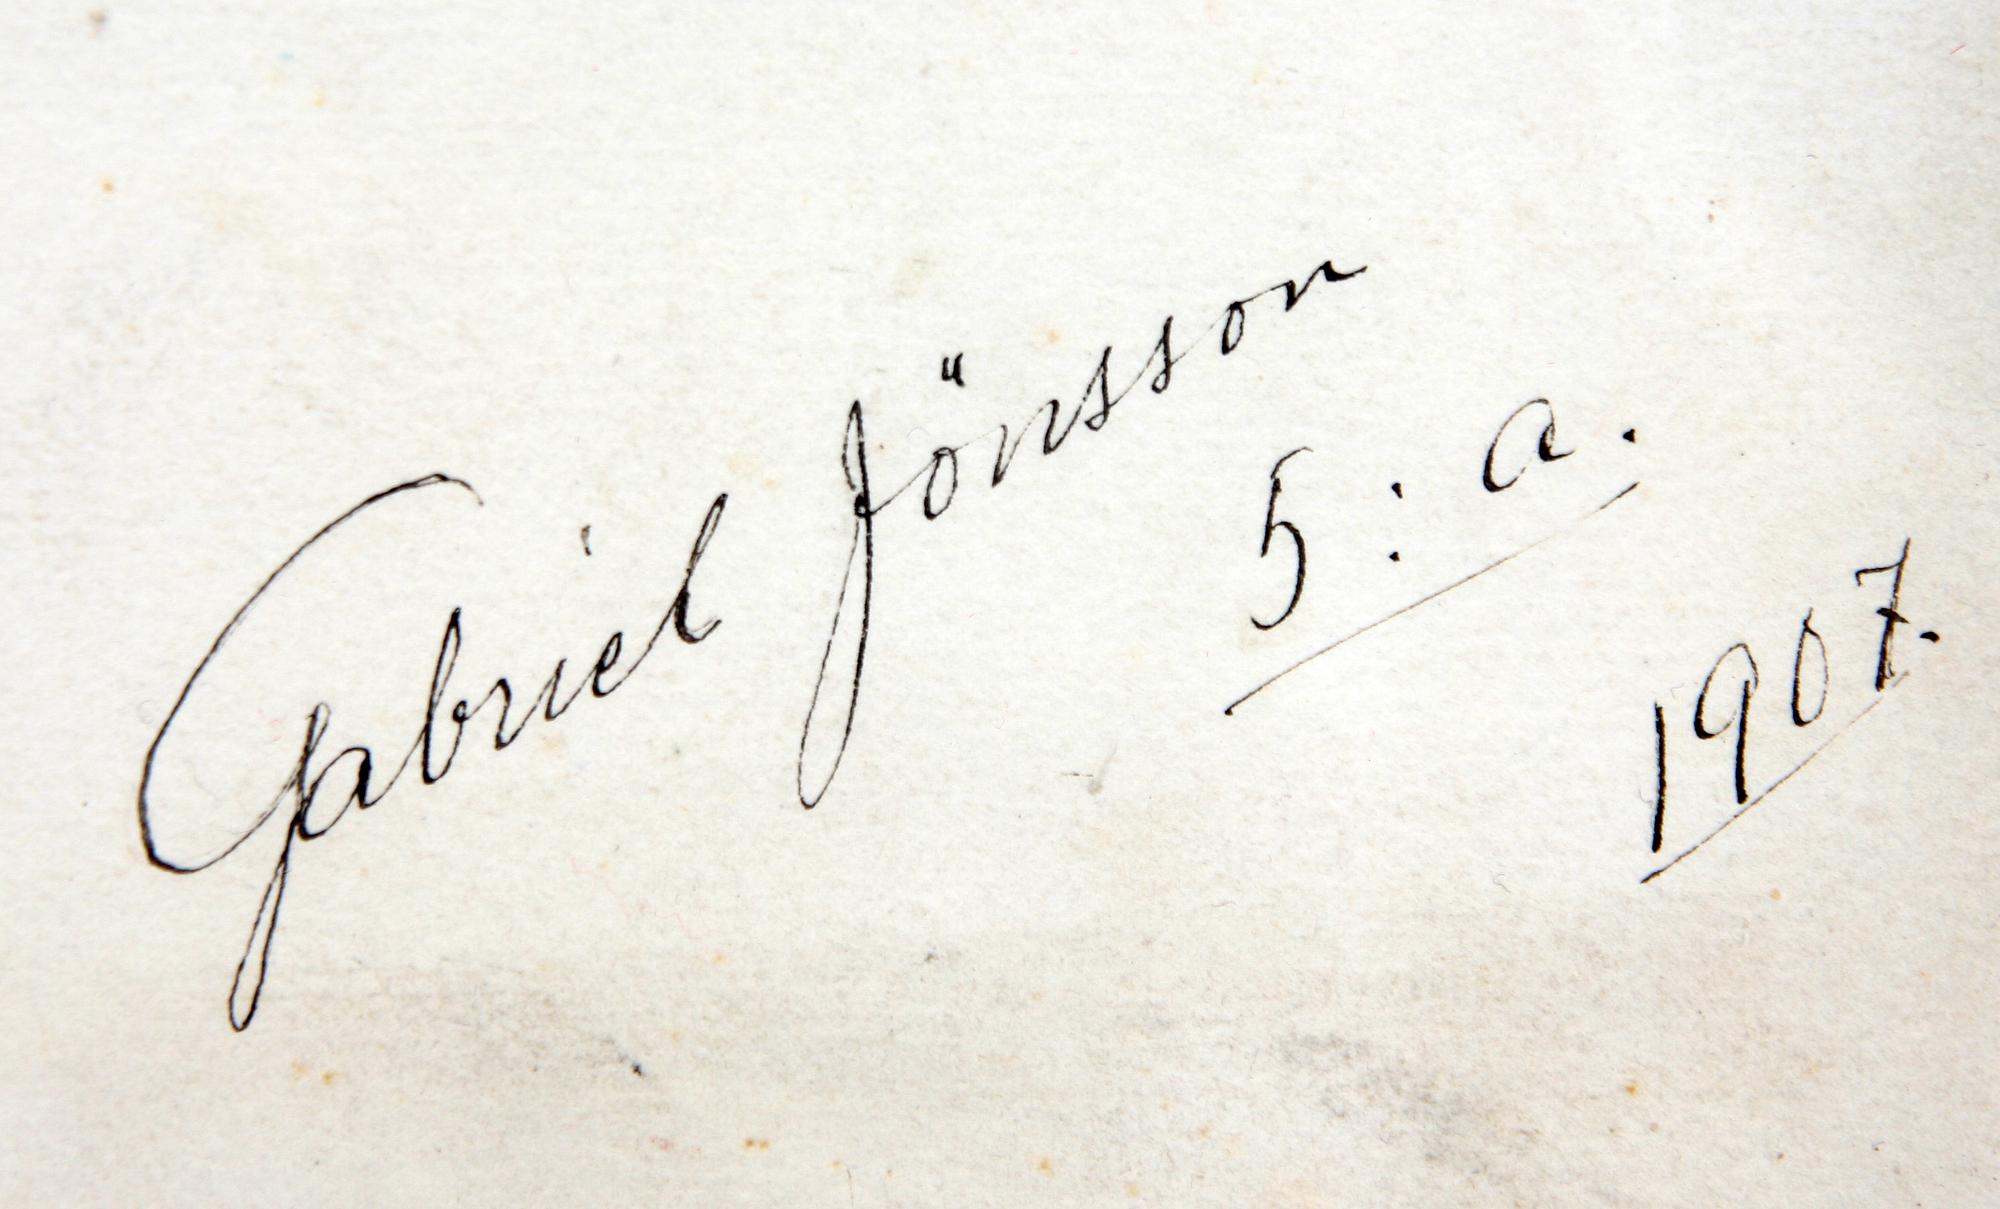 Gabriel Jönsson
5:a.
1907.